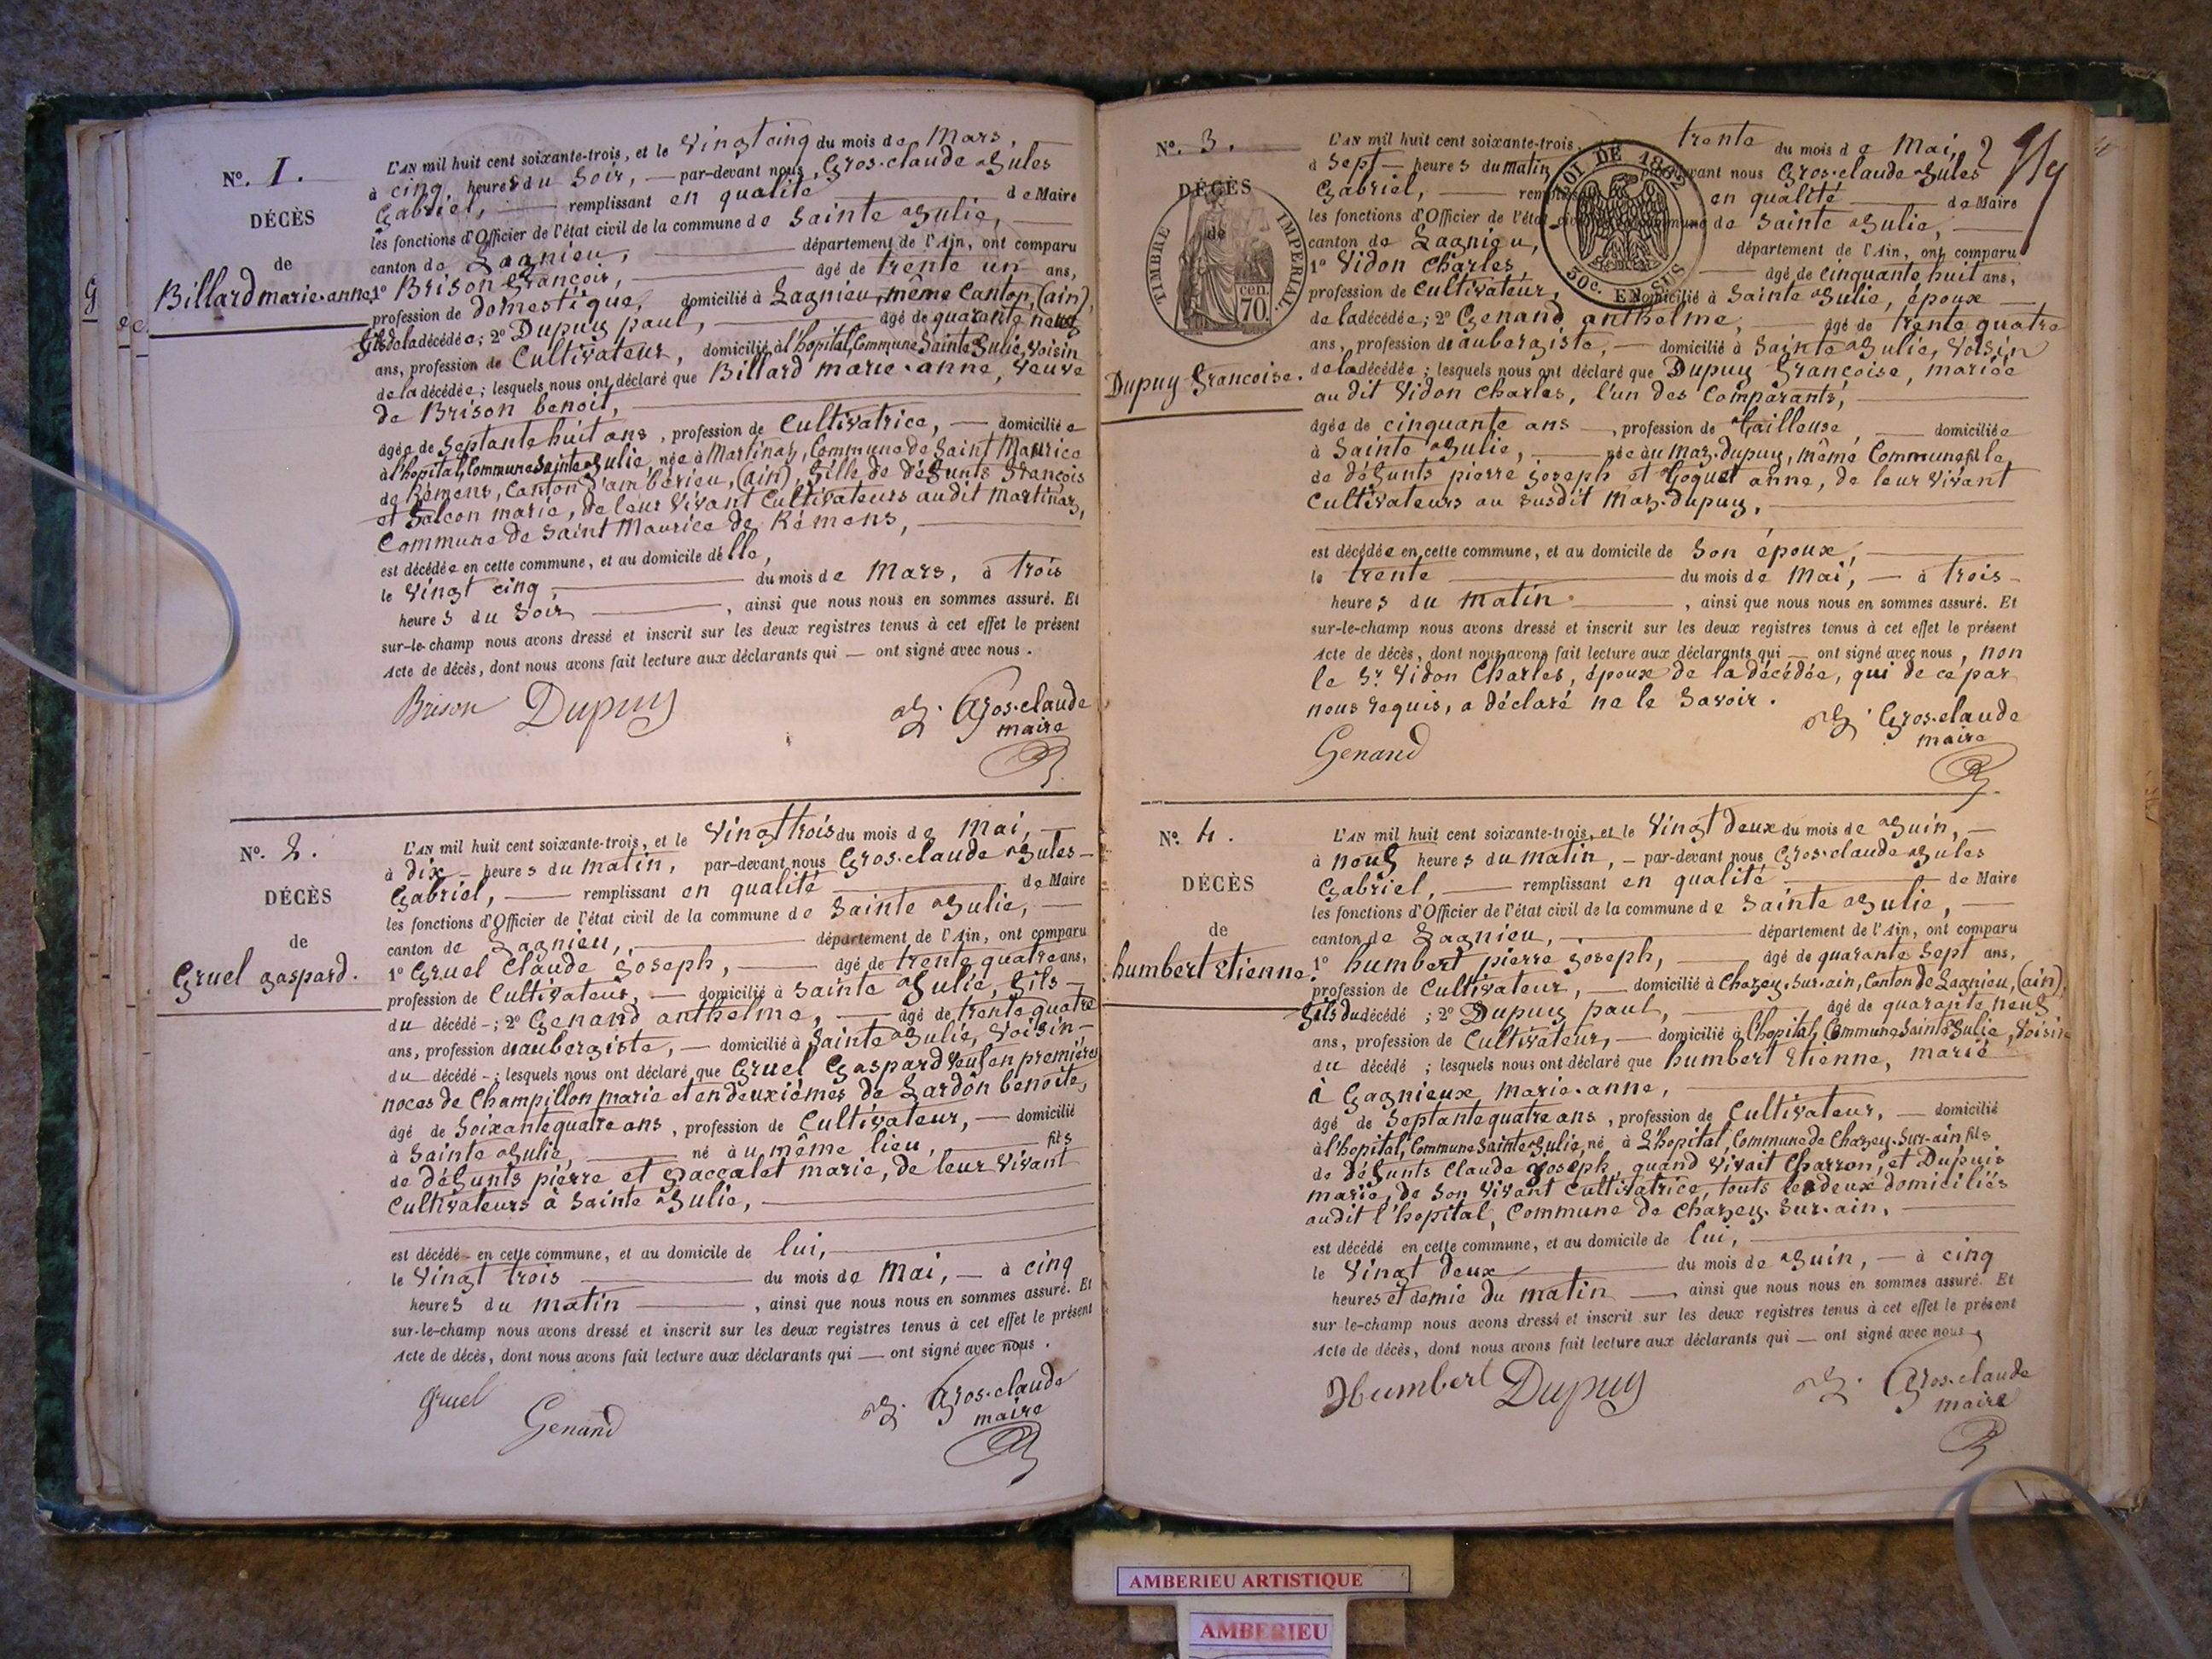 N.º I.
DÉCÈS
de
Billard marie-anne,
L'AN mil huit cent soixante-trois, et le Vingt cinq du mois de Mars,
à cinq heures du Soir, par-devant nous, Gros-claude Jules
Gabriel, remplissant en qualité de Maire
les fonctions d'Officier de l'état civil de la commune de Sainte Julie,
canton de Lagnieu, département de l'Ain, ont comparu
1º Brison François, âgé de trente un ans,
profession de domestique, domicilié à Lagnieu, même Canton, (ain),
fils de la décédée; 2º Dupuy paul, âgé de quarante neuf
ans, profession de Cultivateur, domicilié à l'hopital, Commune Sainte Julie, Voisin
de la décédée; lesquels nous ont déclaré que Billard marie-anne, Veuve
de Brison benoit,
âgée de Septante huit ans, profession de Cultivatrice, domiciliée
à l'hopital, Commune Sainte Julie, née à Martinaz, Commune de Saint Maurice
de Rémens, Canton d'ambérieu, (ain), fille de défunts François
et Falcon marie, de leur Vivant Cultivateurs audit Martinaz,
Commune de Saint Maurice de Rémens,
est décédée en cette commune, et au domicile de lle,
le Vingt cinq, du mois de Mars, à trois
heures du Soir, ainsi que nous nous en sommes assuré. Et
sur-le-champ nous avons dressé et inscrit sur les deux registres tenus à cet effet le présent
Acte de décès, dont nous avons fait lecture aux déclarants qui — ont signé avec nous.
Brison Dupuy J. G. Gros-claude
maire
N.º 2.
DÉCÈS
de
Gruel gaspard.
L'AN mil huit cent soixante-trois, et le Vingt trois du mois de Mai,
à dix heures du matin, par-devant nous Gros-claude Jules
Gabriel, remplissant en qualité de Maire
les fonctions d'Officier de l'état civil de la commune de Sainte Julie,
canton de Lagnieu, département de l'Ain, ont comparu
1º Gruel Claude joseph, âgé de trente quatre ans,
profession de Cultivateur, domicilié à Sainte Julie, fils
du décédé; 2º Genand anthelme, âgé de trente quatre
ans, profession d'aubergiste, domicilié à Sainte Julie, Voisin
du décédé; lesquels nous ont déclaré que Gruel Gaspard Veuf en premières
noces de Champillon marie et en deuxièmes de Lardon benoite,
âgé de Soixante quatre ans, profession de Cultivateur, domicilié
à Sainte Julie, né au même lieu, fils
de défunts pierre et paccalet marie, de leur Vivant
Cultivateurs à Sainte Julie,
est décédé en cette commune, et au domicile de lui,
le Vingt trois du mois de Mai, à cinq
heures du matin, ainsi que nous nous en sommes assuré. Et
sur-le-champ nous avons dressé et inscrit sur les deux registres tenus à cet effet le présent
Acte de décès, dont nous avons fait lecture aux déclarants qui — ont signé avec nous.
Gruel Genand J. G. Gros-claude
maire
N.º 3.
DÉCÈS
de
TIMBRE IMPERIAL.
cen. 70.
LOI DE 1862
50c. EN SUS
Dupuy Françoise.
L'AN mil huit cent soixante-trois, trente du mois de Mai,
à Sept heures du matin, par-devant nous Gros-claude Jules
Gabriel, remplissant en qualité de Maire
les fonctions d'Officier de l'état civil de la commune de Sainte Julie,
canton de Lagnieu, département de l'Ain, ont comparu
1º Vidon Charles, âgé de cinquante huit ans,
profession de Cultivateur, domicilié à Sainte Julie, époux
de la décédée; 2º Genand anthelme, âgé de trente quatre
ans, profession d'aubergiste, domicilié à Sainte Julie, Voisin
de la décédée; lesquels nous ont déclaré que Dupuy Françoise, mariée
au dit Vidon Charles, l'un des Comparants,
âgée de cinquante ans, profession de Tailleuse, domiciliée
à Sainte Julie, née au Maz-dupuy, même Commune fille
de défunts pierre joseph et Goguet anne, de leur Vivant
Cultivateurs au susdit Maz-dupuy,
est décédée en cette commune, et au domicile de Son époux,
le trente du mois de Mai, à trois
heures du matin, ainsi que nous nous en sommes assuré. Et
sur-le-champ nous avons dressé et inscrit sur les deux registres tenus à cet effet le présent
Acte de décès, dont nous avons fait lecture aux déclarants qui — ont signé avec nous, non
le Sr. Vidon Charles, époux de la décédée, qui de ce par
nous requis, a déclaré ne le Savoir.
Genand J. G. Gros-claude
maire
N.º 4.
DÉCÈS
de
humbert Etienne.
L'AN mil huit cent soixante-trois, et le Vingt deux du mois de Juin,
à neuf heures du matin, par-devant nous Gros-claude Jules
Gabriel, remplissant en qualité de Maire
les fonctions d'Officier de l'état civil de la commune de Sainte Julie,
canton de Lagnieu, département de l'Ain, ont comparu
1º humbert pierre joseph, âgé de quarante Sept ans,
profession de Cultivateur, domicilié à Chazey-Sur-ain, Canton de Lagnieu, (ain),
fils du décédé; 2º Dupuy paul, âgé de quarante neuf
ans, profession de Cultivateur, domicilié à l'hopital, Commune Sainte Julie, Voisin
du décédé; lesquels nous ont déclaré que humbert Etienne, marié
à Gagnieux Marie-anne,
âgé de Septante quatre ans, profession de Cultivateur, domicilié
à l'hopital, Commune Sainte Julie, né à L'hopital, Commune de Chazey-Sur-ain fils
de défunts Claude joseph, quand Vivait Charron, et Dupuis
marie, de Son Vivant Cultivatrice, touts les deux domiciliés
audit l'hopital, Commune de Chazey-Sur-ain,
est décédé en cette commune, et au domicile de lui,
le Vingt deux du mois de Juin, à cinq
heures et demie du matin, ainsi que nous nous en sommes assuré. Et
sur-le-champ nous avons dressé et inscrit sur les deux registres tenus à cet effet le présent
Acte de décès, dont nous avons fait lecture aux déclarants qui — ont signé avec nous.
Humbert Dupuy J. G. Gros-claude
maire
AMBERIEU ARTISTIQUE
AMBERIEU